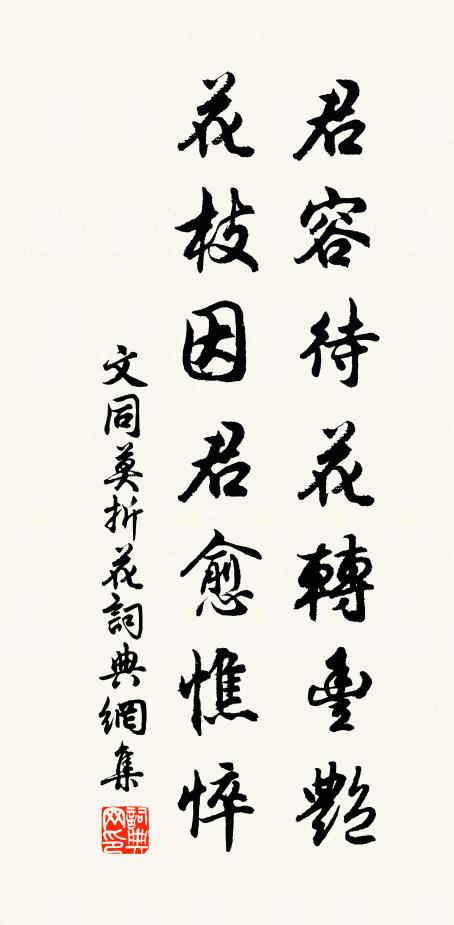 君容待花轉豊艷
花枝因君愈憔悴
文同莫折花詞典網集
詞典网印